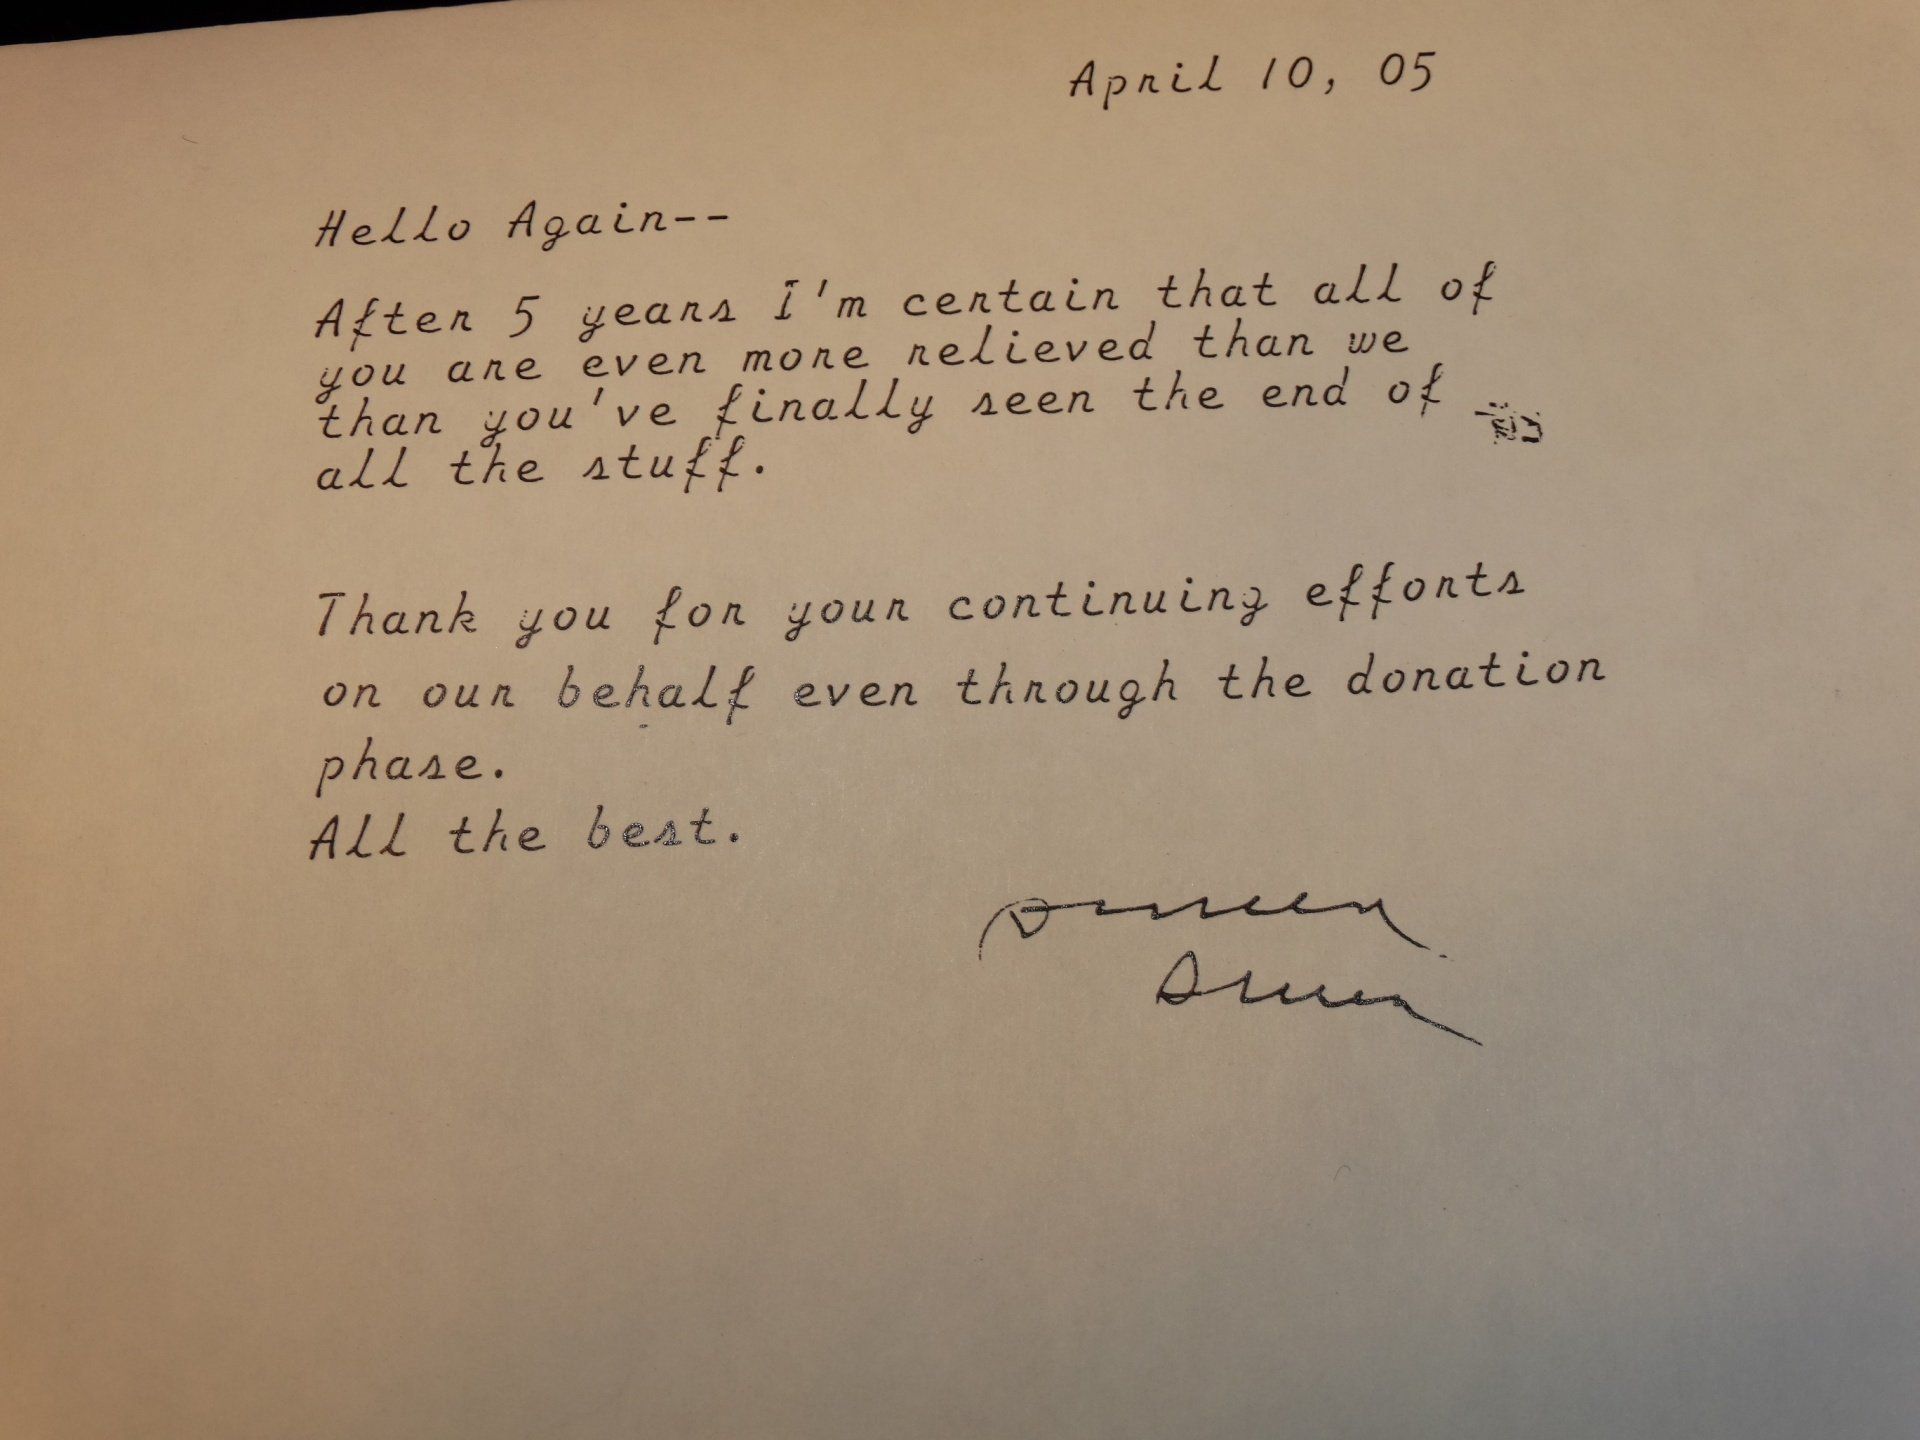 April 10, 05
Hello Again--
After 5 years I'm certain that all of
you are even more relieved than we
than you've finally seen the end of
all the stuff.
Thank you for your continuing efforts
on our behalf even through the donation
phase.
All the best.